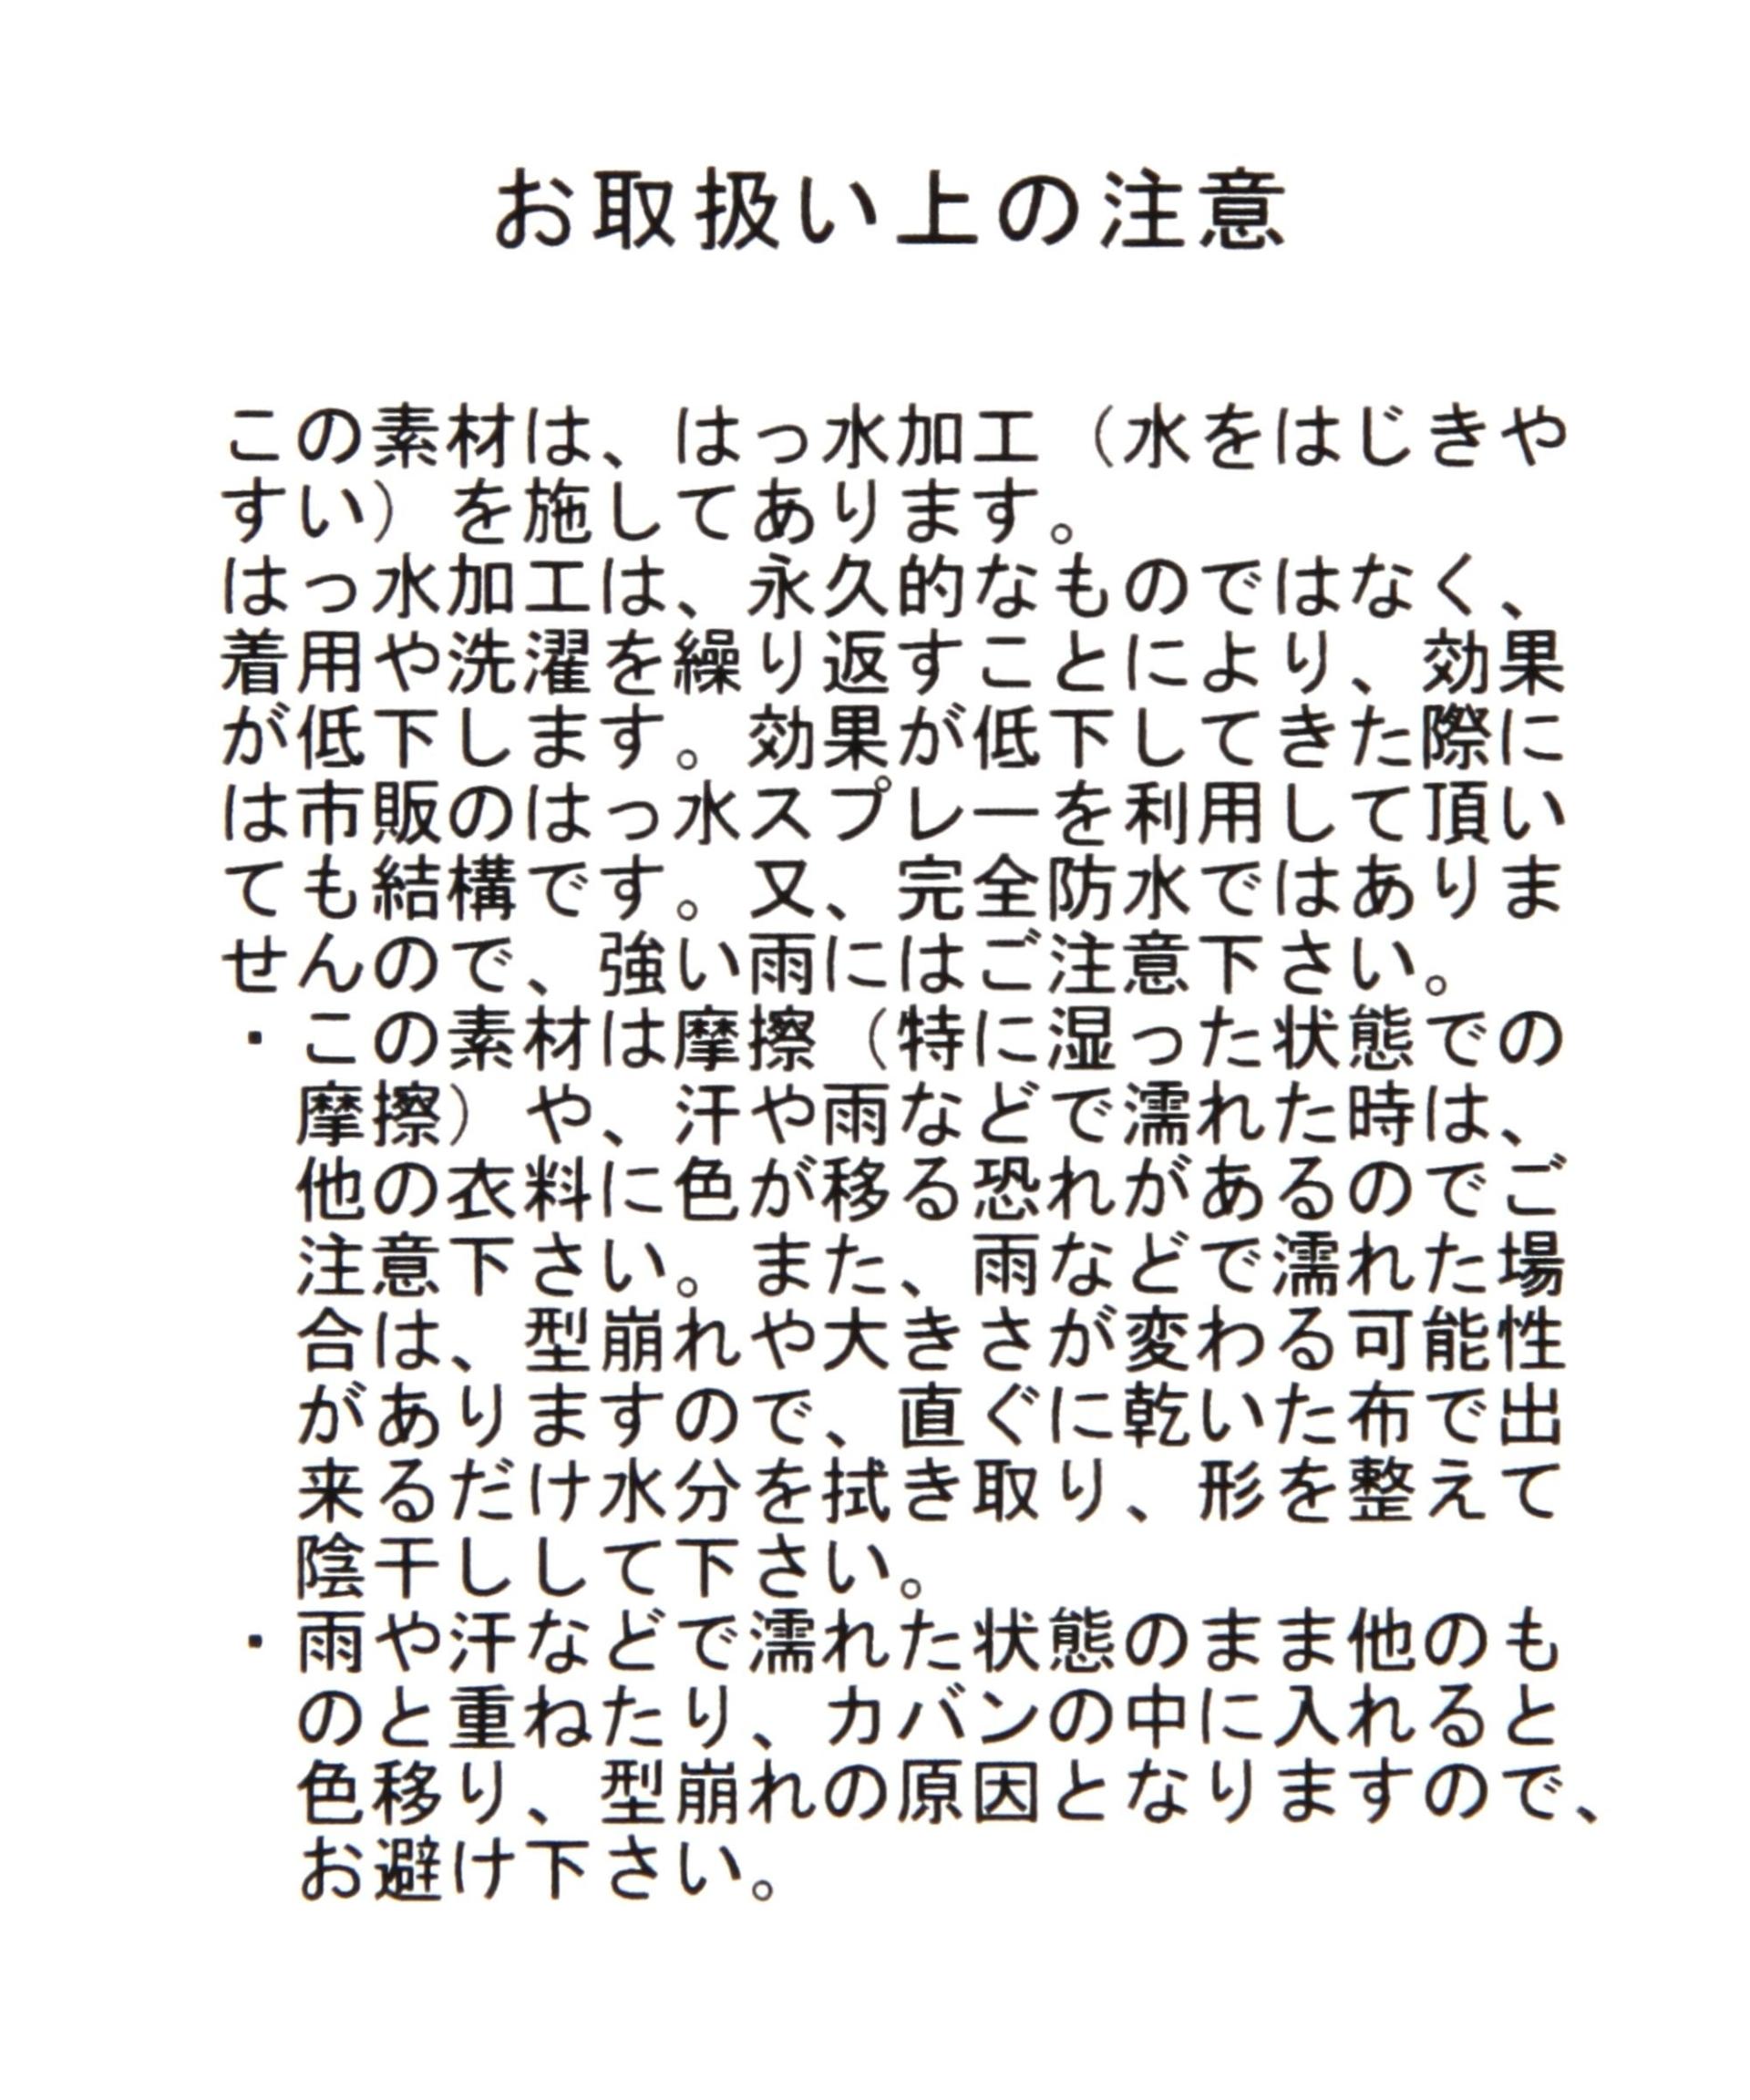 お取扱い上の注意
この素材は、はっ水加工（水をはじきや
すい）を施してあります。
はっ水加工は、永久的なものではなく、
着用や洗濯を繰り返すことにより、効果
が低下します。効果が低下してきた際に
は市販のはっ水スプレーを利用して頂い
ても結構です。又、完全防水ではありま
せんので、強い雨にはご注意下さい。
・この素材は摩擦（特に湿った状態での
摩擦）や、汗や雨などで濡れた時は、
他の衣料に色が移る恐れがあるのでご
注意下さい。また、雨などで濡れた場
合は、型崩れや大きさが変わる可能性
がありますので、直ぐに乾いた布で出
来るだけ水分を拭き取り、形を整えて
陰干しして下さい。
・雨や汗などで濡れた状態のまま他のも
のと重ねたり、カバンの中に入れると
色移り、型崩れの原因となりますので、
お避け下さい。